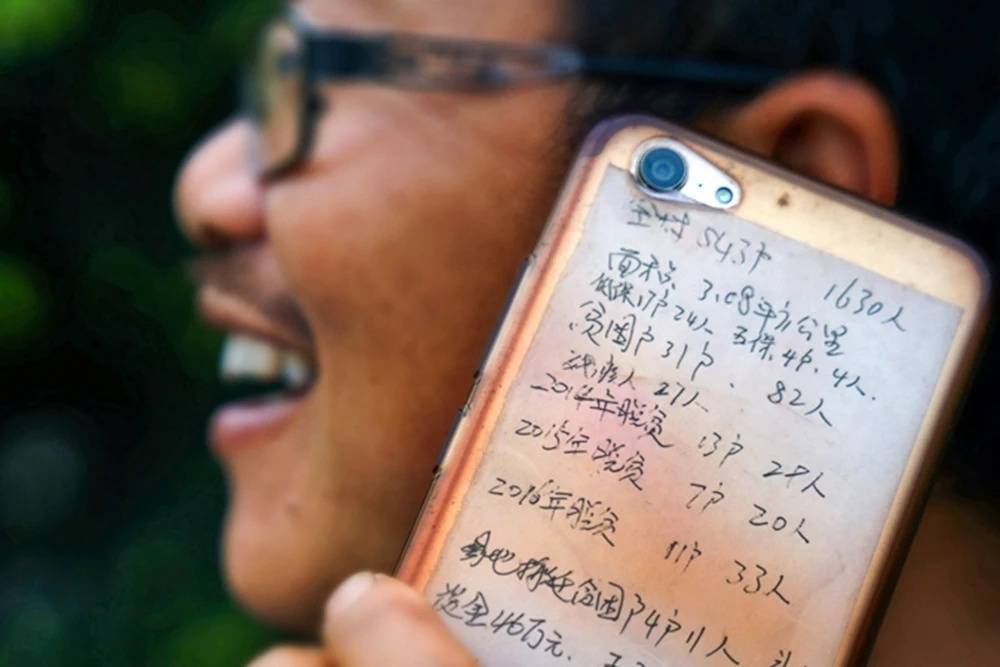 全村543户 1630人
面积:3.08平方公里
低保17户24人 五保.4户.4人.
贫困户31户. 82人
残疾人27人
2014年脱贫 13户 29人
2015年脱贫 7户 20人
2016年脱贫 11户 33人
易地搬迁贫困户4户11人
资金46万元.